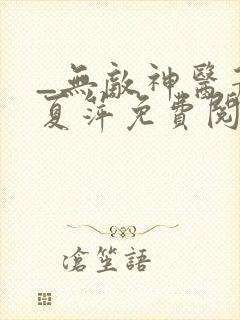 _無敵神醫
夏萍免費閱
滄笙語